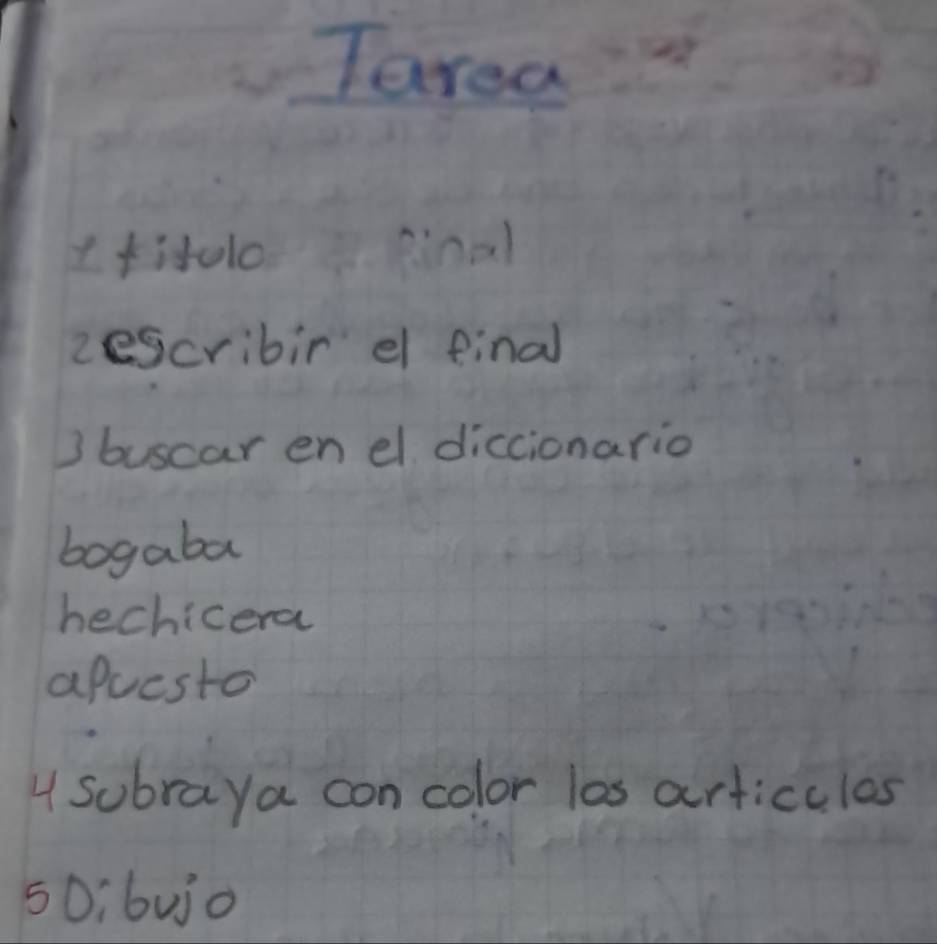 Tarea
1 titulo final
2 escribir el final
3 buscar en el diccionario
bogaba
hechicera
apuesto
4 subraya con color los articulos
5 Dibujo